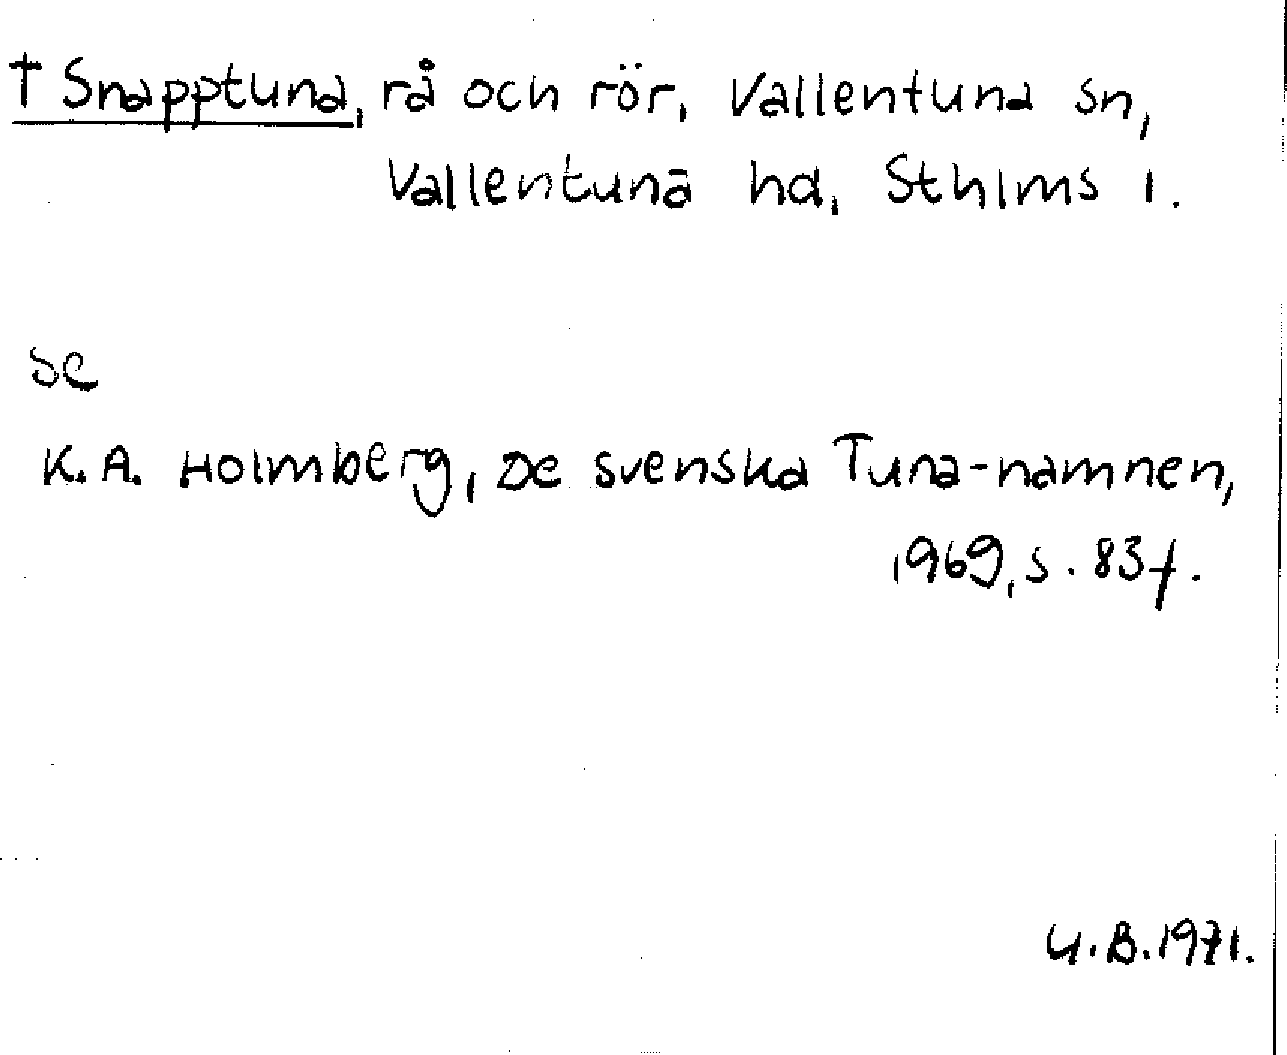 † Snapptuna, rå och rör, Vallentuna sn,
Vallentuna hd, Sthlms l.
se
K.A. Holmberg, De svenska Tuna-namnen,
1969, s. 83f.
U.B. 1971.